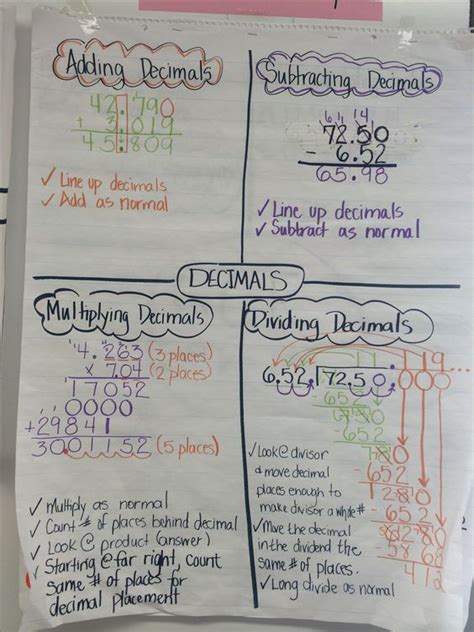 Adding Decimals
42.790
+ 3.019
45.809
✓ Line up decimals
✓ Add as normal
Subtracting Decimals
72.50
- 6.52
65.98
✓ Line up decimals
✓ Subtract as normal
DECIMALS
Multiplying Decimals
4.263 (3 places)
x 7.04 (2 places)
17052
0000
+29841
30.01152 (5 places)
✓ Multiply as normal
✓ Count # of places behind decimal
✓ Look @ product (answer)
✓ Starting @ far right, count
same # of places for
decimal placement
Dividing Decimals
11.19...
6.52.)72.50.000
652
652
✓ Look @ divisor
& move decimal
places enough to
make divisor a whole #
✓ Move the decimal
in the dividend the
same # of places.
✓ Long divide as normal
- 652
- 652
- 5868
412